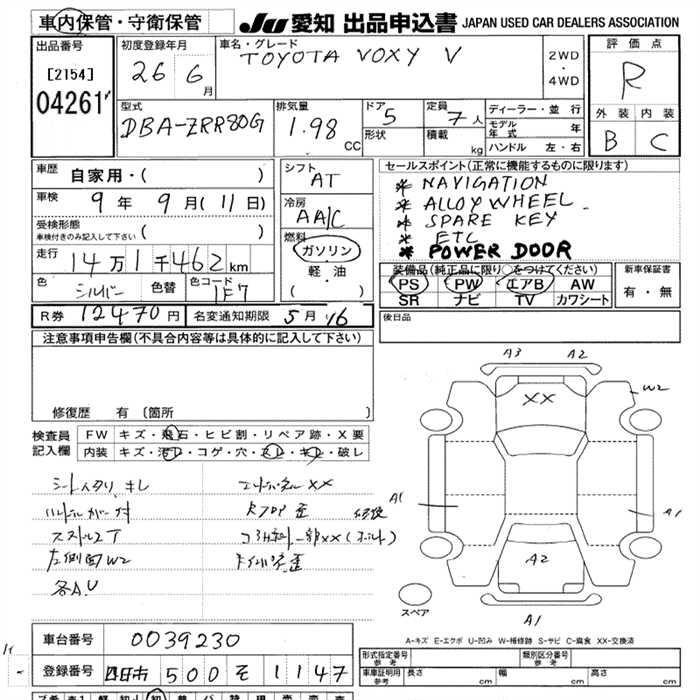 車内保管・守衛保管
JU 愛知 出品申込書 JAPAN USED CAR DEALERS ASSOCIATION
出品番号
[2154]
04261
初度登録年月
26 6月
車名・グレード
TOYOTA VOXY V
2WD
・
4WD
評価点
R
外装 内装
B C
型式
DBA-ZRR80G
排気量
1.98 CC
ドア 5
形状
定員 7人
積載 kg
ディーラー・並行
モデル年式 年
ハンドル 左・右
車歴 自家用・( )
車検 9年 9月(11日)
受検形態
車検付きのみ記入して下さい ( )
走行 14万1千462km
色 シルバー 色替 色コード 1F7
R券 12470円 名変通知期限 5月16
シフト
AT
冷房
AA/C
燃料
ガソリン
軽・油
・
( )
セールスポイント(正常に機能するものに限ります)
* NAVIGATION
* ALLOY WHEEL
* SPARE KEY
* ETC
* POWER DOOR
装備品(純正品に限り○をつけてください)
PS PW エアB AW
SR ナビ TV カワシート
新車保証書
有・無
後日品
注意事項申告欄(不具合内容等は具体的に記入して下さい)
修復歴 有 〔箇所
検査員
記入欄
FW キズ・飛石・ヒビ割・リペア跡・X要
内装 キズ・汚レ・コゲ・穴・スレ・キレ・破レ
シートヘタリ、キレ
ハンドルカバー付
左側面W2
各A.U
A3 A2
XX
W2
A1
A1
A2
A1
スペア
A-キズ E-エクボ U-凹み W-補修跡 S-サビ C-腐食 XX-交換済
車台番号 0039230
登録番号 四日市 500 そ 1147
形式指定番号
参考
類別区分番号
参考
車庫証明用
参考
長さ cm 幅 cm 高さ cm